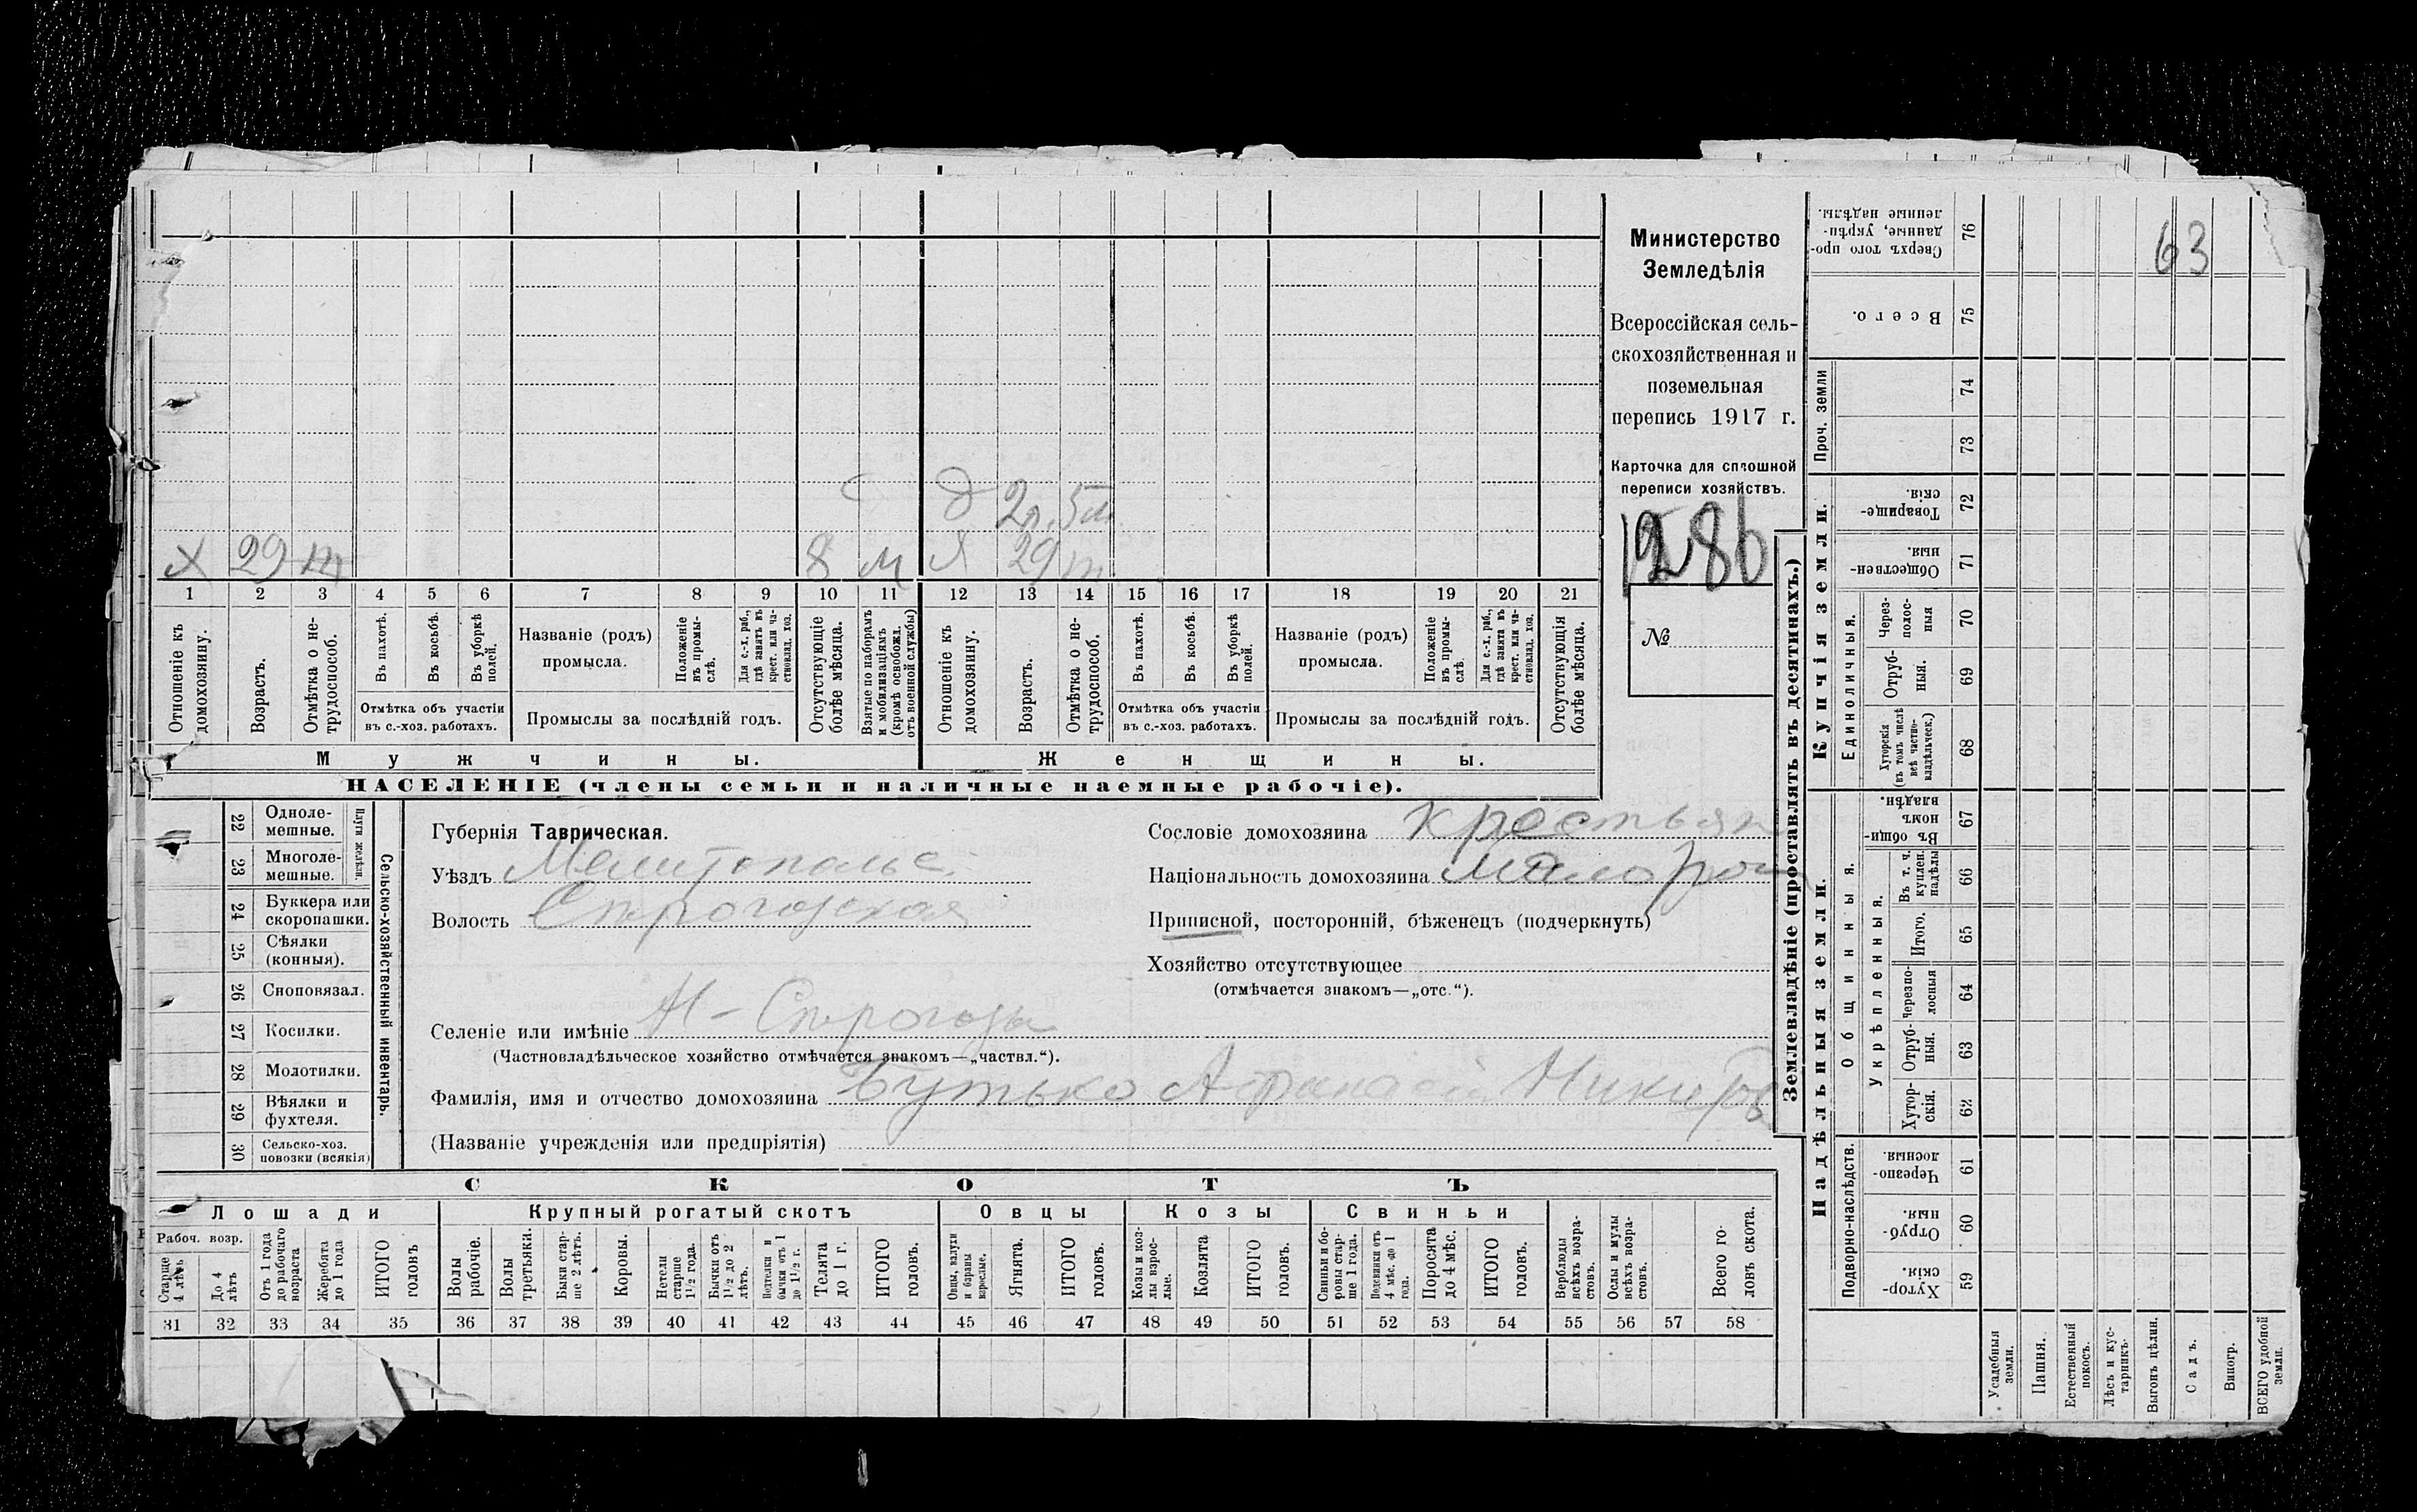 63
Министерство
Земледѣлія
Всероссійская сель-
скохозяйственная и
поземельная
перепись 1917 г.
Карточка для сплошной
переписи хозяйствъ.
1286
№
д 2л. 5м
х 29 т 8 м х 29 т
1 2 3 4 5 6 7 8 9 10 11 12 13 14 15 16 17 18 19 20 21
Отношеніе къ домохозяину.
Возрастъ.
Отмѣтка о не-трудоспособ.
Въ пахотѣ.
Въ косьбѣ.
Въ уборкѣ полей.
Отмѣтка объ участіи
въ с.-хоз. работахъ.
Названіе (родъ)
промысла.
Положеніе въ промы-слѣ.
Для с.-х. раб., гдѣ занятъ въ крест. или ча-стновлад. хоз.
Промыслы за послѣдній годъ.
Отсутствующіе болѣе мѣсяца.
Взятые по наборамъ и мобилизаціямъ (кромѣ освобожд. отъ военной службы)
Отношеніе къ домохозяину.
Возрастъ.
Отмѣтка о не-трудоспособ.
Въ пахотѣ.
Въ косьбѣ.
Въ уборкѣ полей.
Отмѣтка объ участіи
въ с.-хоз. работахъ.
Названіе (родъ)
промысла.
Положеніе въ промы-слѣ.
Для с.-х. раб., гдѣ занята въ крест. или ча-стновлад. хоз.
Промыслы за послѣдній годъ.
Отсутствующія болѣе мѣсяца.
Мужчины.
Женщины.
НАСЕЛЕНІЕ (члены семьи и наличные наемные рабочіе).
Сельско-хозяйственный инвентарь.
Плуги желѣзн.
22 Одноле-мешные.
23 Многоле-мешные.
24 Буккера или скоропашки.
25 Сѣялки (конныя).
26 Сноповязал.
27 Косилки.
28 Молотилки.
29 Вѣялки и фухтеля.
30 Сельско-хоз. повозки (всякія)
Губернія Таврическая.
Уѣздъ Мелитопольс.
Волость
Сословіе домохозяина крестьян
Національность домохозяина малорос
Приписной, посторонній, бѣженецъ (подчеркнуть)
Хозяйство отсутствующее
(отмѣчается знакомъ—„отс.“).
Селеніе или имѣніе Н-Серогозы
(Частновладѣльческое хозяйство отмѣчается знакомъ—„частвл.“).
Фамилія, имя и отчество домохозяина Бутько Афанасій Никитов
(Названіе учрежденія или предпріятія)
СКОТЪ
Лошади
Крупный рогатый скотъ
Овцы
Козы
Свиньи
Рабоч. возр.
Старше 4 лѣтъ
До 4 лѣтъ
Отъ 1 года до рабочаго возраста
Жеребята до 1 года
ИТОГО головъ
Волы рабочіе.
Волы третьяки.
Быки стар-ше 2 лѣтъ.
Коровы.
Нетели старше 1 1/2 года.
Бычки отъ 1 1/2 до 2 лѣтъ.
Подтелки и бычки отъ 1 до 1 1/2 г.
Телята до 1 г.
ИТОГО головъ.
Овцы, валухи и бараны взрослые.
Ягнята.
ИТОГО головъ.
Козы и коз-лы взрос-лые.
Козлята
ИТОГО головъ.
Свиньи и бо-ровы стар-ше 1 года.
Подсвинки отъ 4 мѣс. до 1 года.
Поросята до 4 мѣс.
ИТОГО головъ.
Верблюды всѣхъ возра-стовъ.
Ослы и мулы всѣхъ возра-стовъ.
Всего го-ловъ скота.
31 32 33 34 35 36 37 38 39 40 41 42 43 44 45 46 47 48 49 50 51 52 53 54 55 56 57 58
Землевладѣніе (проставлять въ десятинахъ.)
Надѣльныя земли.
Подворно-наслѣдств.
59 Хутор-скія.
60 Отруб-ныя.
61 Черезпо-лосныя.
Общинныя.
Укрѣпленныя.
62 Хутор-скія.
63 Отруб-ныя.
64 черезпо-лосныя
65 Итого.
66 Въ т. ч. куплен. надѣлы
67 Въ общин-номъ владѣн.
Купчія земли.
Единоличныя.
68 Хуторскія (въ томъ числѣ всѣ частно-владѣльческ.)
69 Отруб-ныя.
70 Через-полос-ныя
71 Обществен-ныя.
72 Товарище-скія.
Проч. земли
73
74
75 Всего.
76 Сверхъ того про-данные, укрѣп-ленные надѣлы.
Усадебныя земли.
Пашня.
Естественный покосъ.
Лѣсъ и кус-тарникъ.
Выгонъ цѣлин.
Садъ.
Виногр.
ВСЕГО удобной земли.